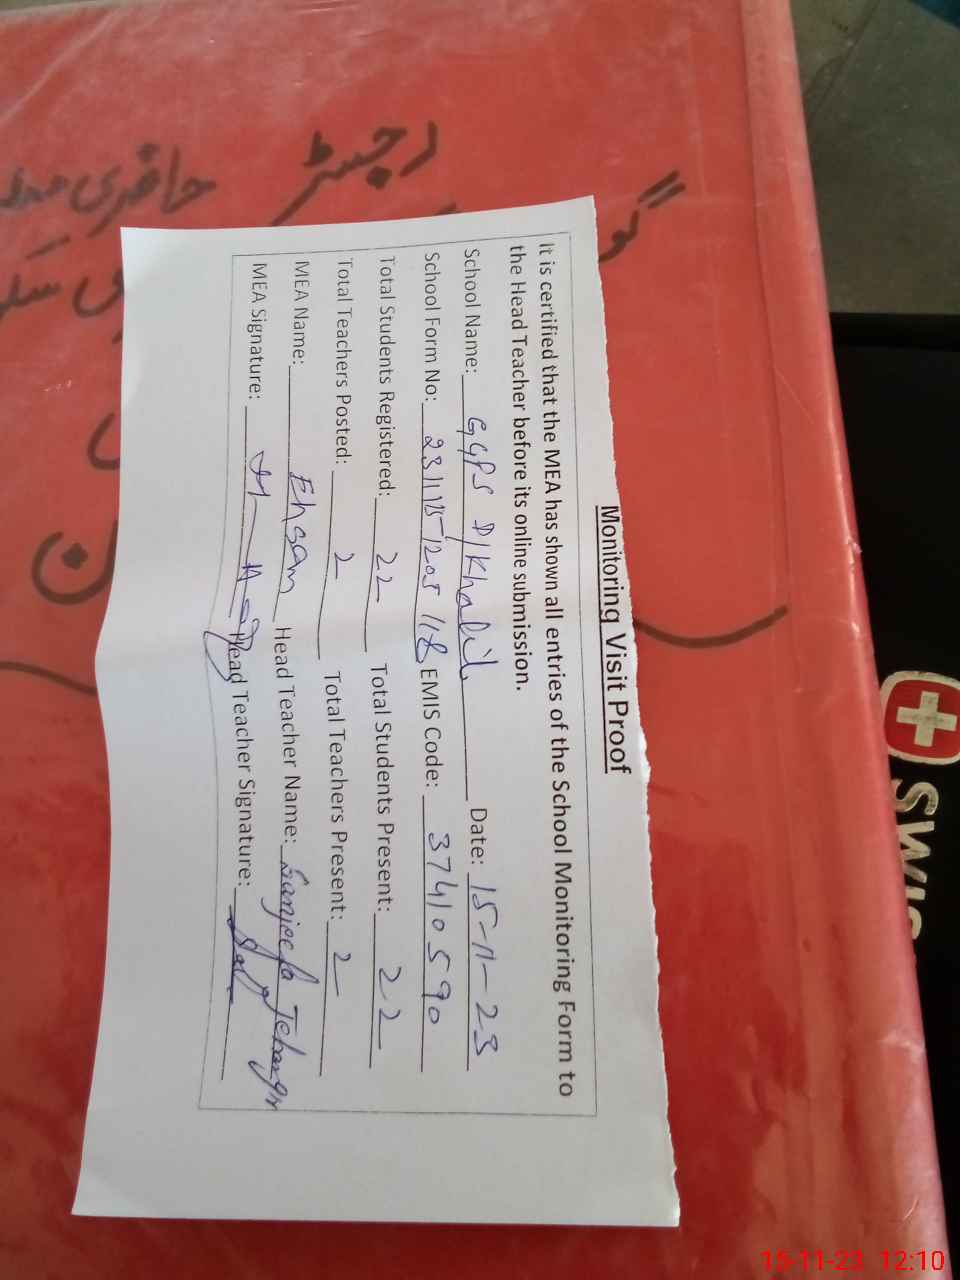 Monitoring Visit Proof
It is certified that the MEA has shown all entries of the School Monitoring Form to
the Head Teacher before its online submission.
School Name: GGPS D/Khalil Date: 15-11-23
School Form No: EMIS Code: 37410590
Total Students Registered: 22 Total Students Present: 22
Total Teachers Posted: 2 Total Teachers Present: 2
MEA Name: Ehsan Head Teacher Name:
MEA Signature: Head Teacher Signature:
رجسٹر حاضری
SWIS
15-11-23 12:10